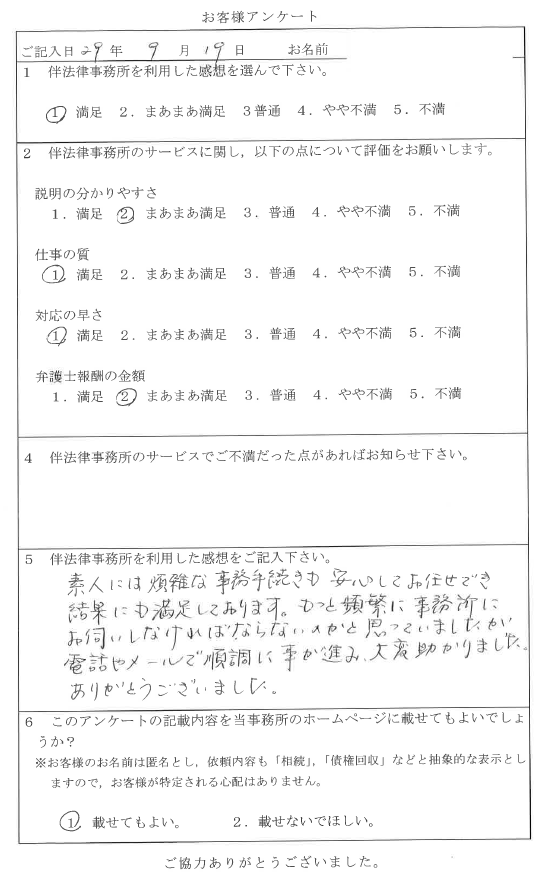 お客様アンケート
ご記入日 29年 9月 19日 お名前
1 伴法律事務所を利用した感想を選んで下さい。
① 満足 2．まあまあ満足 3普通 4．やや不満 5．不満
2 伴法律事務所のサービスに関し，以下の点について評価をお願いします。
説明の分かりやすさ
1．満足 ② まあまあ満足 3．普通 4．やや不満 5．不満
仕事の質
① 満足 2．まあまあ満足 3．普通 4．やや不満 5．不満
対応の早さ
① 満足 2．まあまあ満足 3．普通 4．やや不満 5．不満
弁護士報酬の金額
1．満足 ② まあまあ満足 3．普通 4．やや不満 5．不満
4 伴法律事務所のサービスでご不満だった点があればお知らせ下さい。
5 伴法律事務所を利用した感想をご記入下さい。
素人には煩雑な事務手続きも安心してお任せでき
結果にも満足しております。もっと頻繁に事務所に
お伺いしなければならないのかと思っていましたが
電話やメールで順調に事が進み、大変助かりました。
ありがとうございました。
6 このアンケートの記載内容を当事務所のホームページに載せてもよいでしょ
うか？
※お客様のお名前は匿名とし，依頼内容も「相続」，「債権回収」などと抽象的な表示とし
ますので，お客様が特定される心配はありません。
① 載せてもよい。 2．載せないでほしい。
ご協力ありがとうございました。